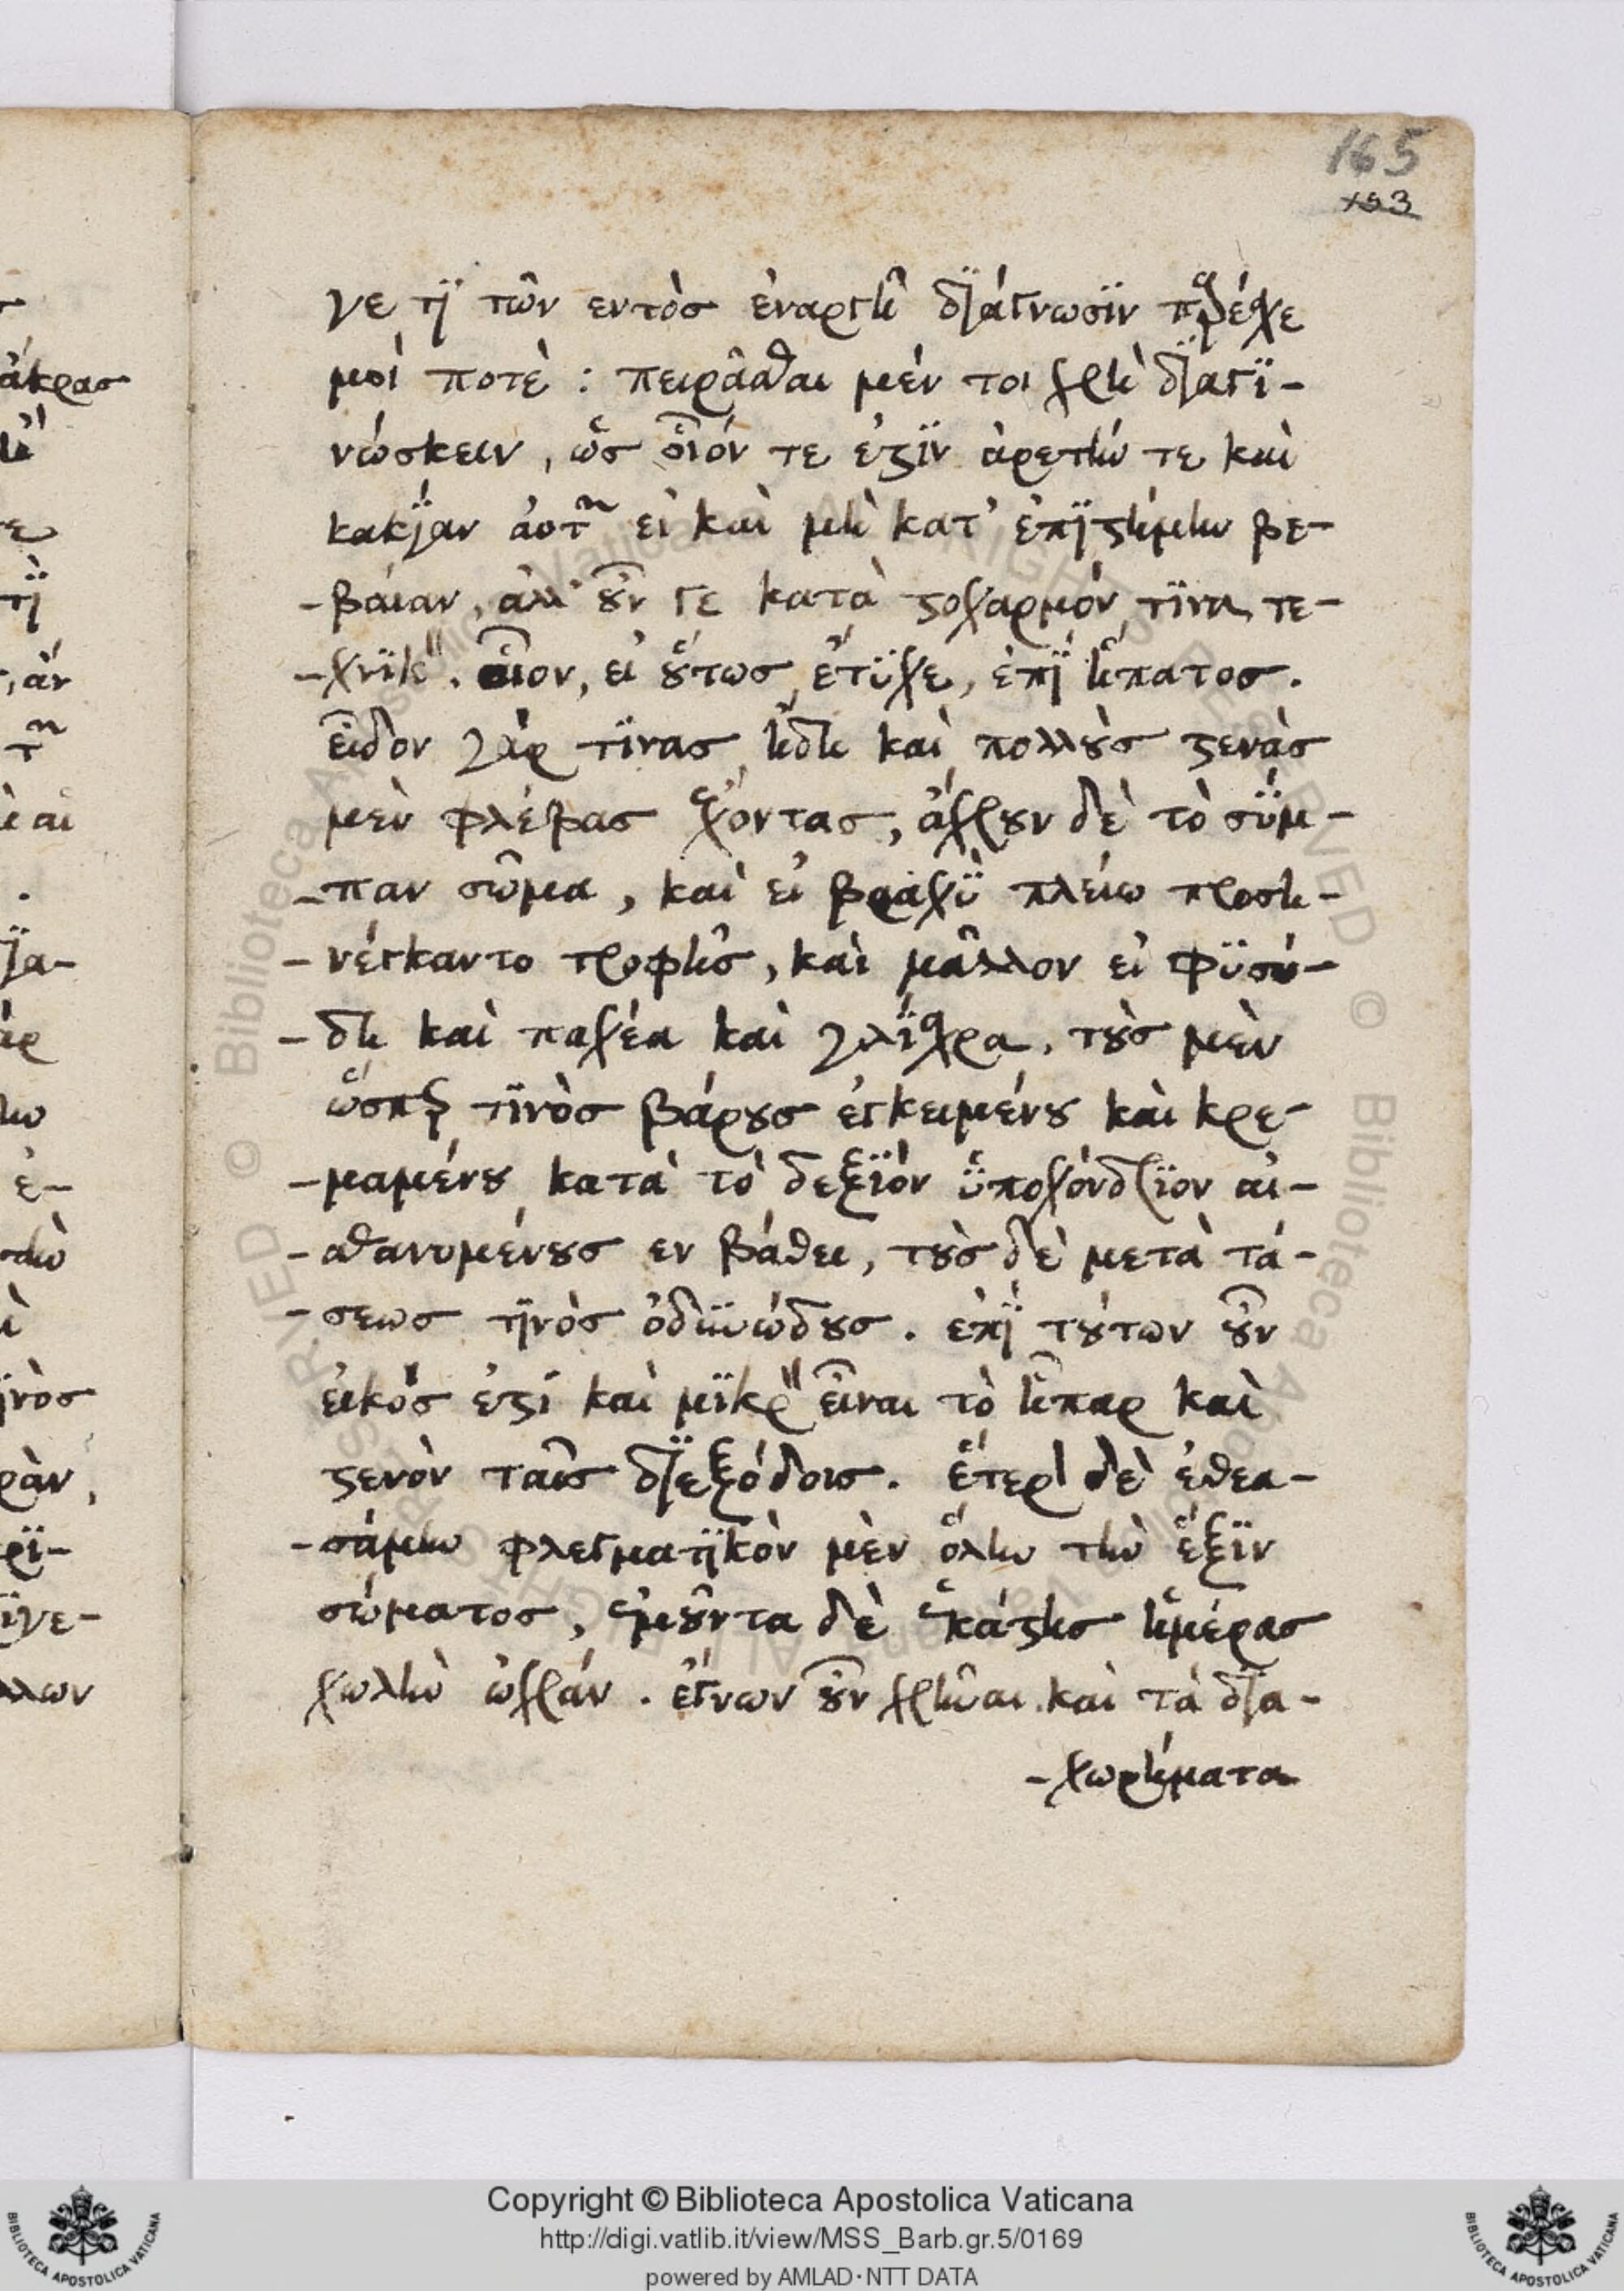 165
153
γε τϊ τῶν εντὸσ ἐναργῆ διάγνωσϊν παρέχε
μοί ποτὲ : πειρᾶσθαι μέν τοι χρὴ διαγϊ-
νώσκειν, ὥσ οἷόν τε ἐστϊν ἀρετήν τε καὶ
κακίαν ἀυτῶν εἰ καὶ μὴ κατ' ἐπϊστήμην βε-
-βαίαν, ἀλλ' οὖν γε κατὰ στοχασμόν τϊνα τε-
-χνϊκὸν. οἷον, εἰ οὕτωσ ἔτϋχε, ἐπϊ ἥπατοσ.
εἶδον γάρ τϊνασ ἤδη καὶ πολλοὺσ στενὰσ
μὲν φλέβασ ἔχοντασ, ἄχρουν δὲ τὸ σύμ-
-παν σῶμα, καὶ εἰ βραχὺ πλείω προση-
-νέγκαντο τροφῆσ, καὶ μᾶλλον εἰ φϋσώ-
-δη καὶ παχέα καὶ γλίσχρα, τοὺσ μὲν
ὥσπερ τϊνὸσ βάρουσ ἐγκειμένου καὶ κρε-
-μαμένου κατὰ τὸ δεξϊὸν ὑποχόνδρϊον αἰ-
-σθανομένουσ εν βάθει, τοὺσ δὲ μετὰ τά-
-σεωσ τϊνὸσ ὀδυνώδουσ. ἐπϊ τούτων οὖν
εἰκόσ ἐστί καὶ μϊκρὸν εἶναι τὸ ἧπαρ καὶ
στενὸν ταῖσ διεξόδοισ. ἕτερον δὲ ἐθεα-
-σάμην φλεγματϊκὸν μὲν ὅλην τὴν ἕξϊν
σώματοσ, ἐμοῦντα δὲ ἑκάστησ ἡμέρασ
χωλὴν ὠχράν. ἔγνων οὖν χρῆναι καὶ τὰ δια-
-χωρήματα
Copyright © Biblioteca Apostolica Vaticana
http://digi.vatlib.it/view/MSS_Barb.gr.5/0169
powered by AMLAD·NTT DATA